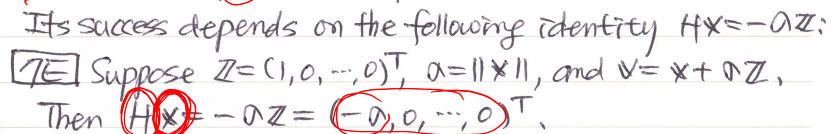 Its success depends on the following identity Hx=-az:
7E Suppose z=(1,0,…,0)ᵀ, a=||x||, and v=x+az.
Then Hx=-az=(-a,0,…,0)ᵀ.